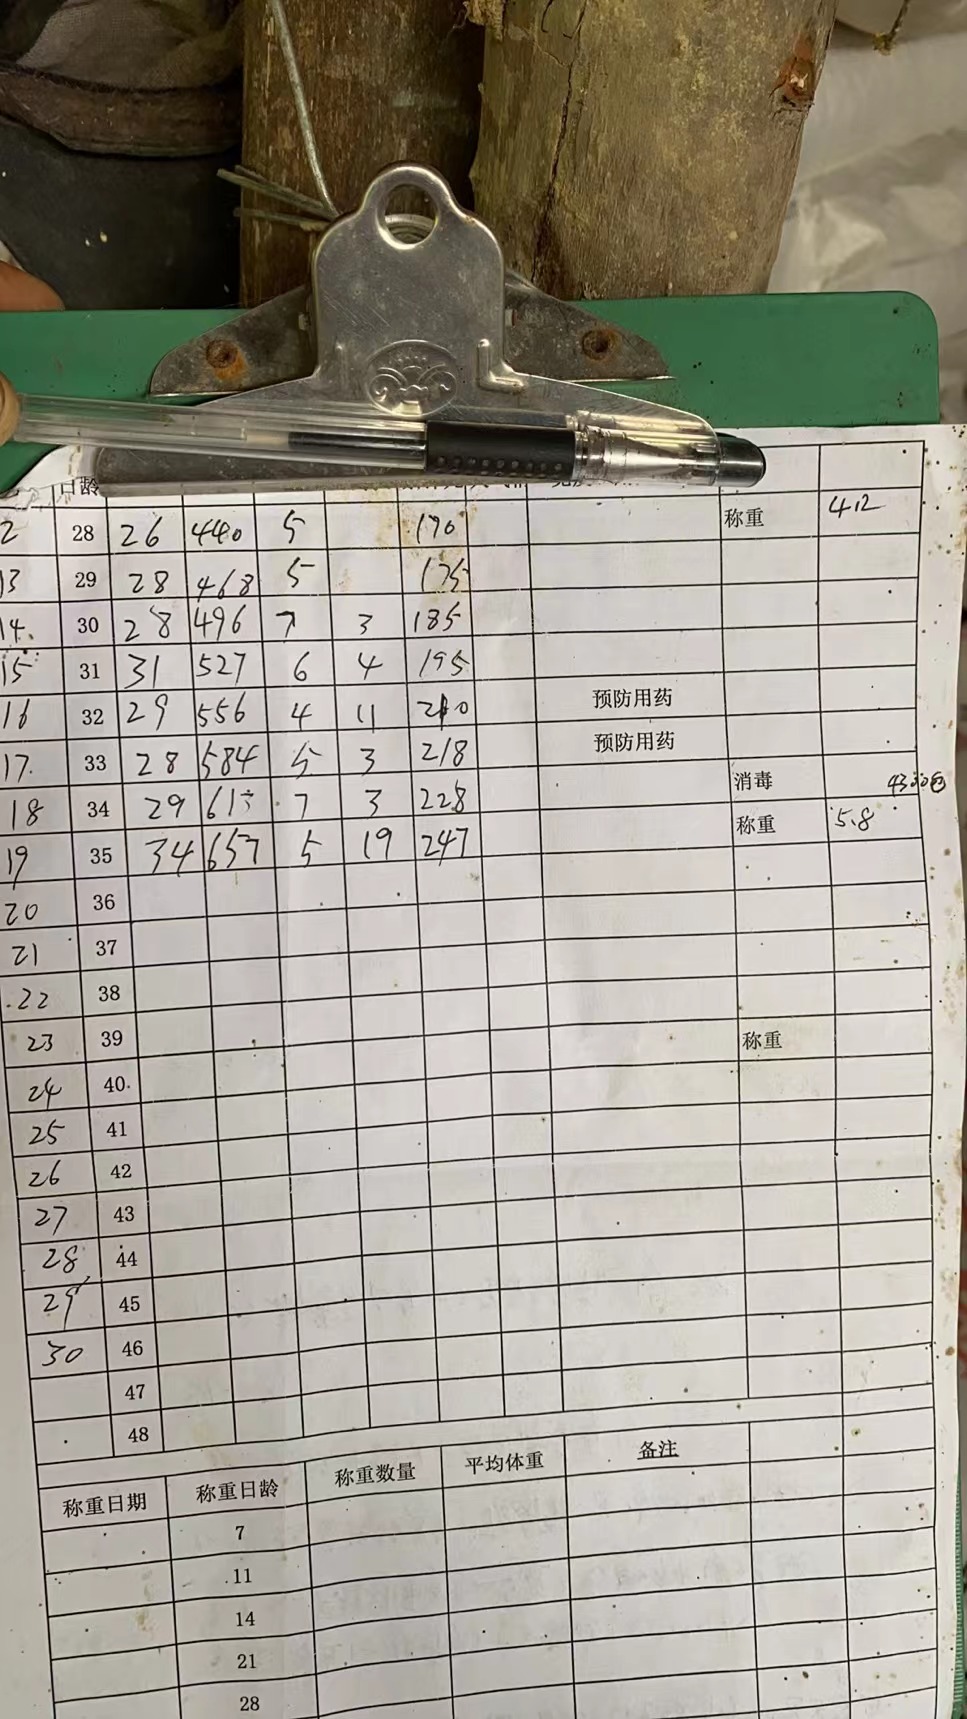 日龄
2 28 26 440 5 170 称重 4.12
13 29 28 468 5 175
14. 30 28 496 7 3 185
15 31 31 527 6 4 195
16 32 29 556 4 11 210 预防用药
17. 33 28 584 5 3 218 预防用药
18 34 29 613 7 3 228 消毒
19 35 34 657 5 19 247 称重 5.8
20 36
21 37
22 38
23 39 称重
24 40
25 41
26 42
27 43
28 44
29 45
30 46
47
48
称重日期 称重日龄 称重数量 平均体重 备注
7
11
14
21
28